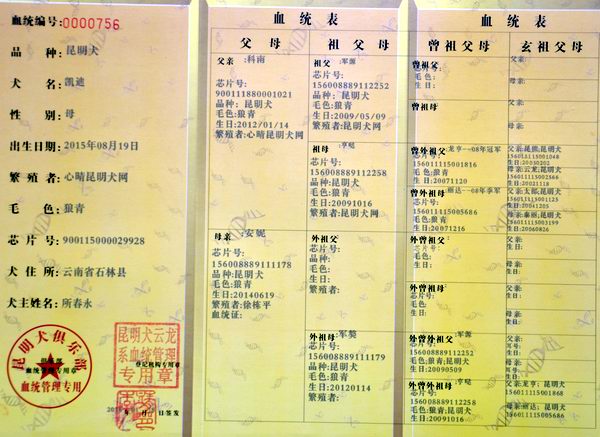 血统编号:0000756
品种:昆明犬
犬名:凯迪
性别:母
出生日期:2015年08月19日
繁殖者:心晴昆明犬网
毛色:狼青
芯片号:900115000029928
犬住所:云南省石林县
犬主姓名:所春永
昆明犬俱乐部
血统管理专用章
血统管理专用
昆明犬云龙
系血统管理
登记机构专用章
专用章
日签发
血统表
父母
祖父母
父亲:科南
芯片号:
900111880001021
品种:昆明犬
毛色:狼青
生日:2012/01/14
繁殖者:心晴昆明犬网
母亲:安妮
芯片号:
156008889111178
品种:昆明犬
毛色:狼青
生日:20140619
繁殖者:徐栋平
血统证:
祖父:军源
芯片号:
156008889112252
品种:昆明犬
毛色:狼青
生日:2009/05/09
繁殖者:昆明犬网
祖母:亨哒
芯片号:
156008889112258
品种:昆明犬
毛色:狼青
生日:20091016
繁殖者:昆明犬网
外祖父:
芯片号:
品种:昆明犬
毛色:
生日:
繁殖者:
外祖母:军獒
芯片号:
156008889111179
品种:昆明犬
毛色:狼青
生日:20120114
繁殖者:
血统表
曾祖父母
玄祖父母
曾祖父:
芯片号:
毛色:
生日:
曾祖母
曾外祖父:龙亨--08年冠军
芯片号:
156011115001816
毛色:狼青
生日:20071120
曾外祖母:丽达--08年季军
芯片号:
156011115005686
毛色:狼青
生日:20071216
外曾祖父:
芯片号:
毛色:
生日:
外曾祖母
芯片号:
毛色:
生日:
外曾外祖父:军源
芯片号:
156008889112252
毛色:狼青;昆明犬
生日:20090509
外曾外祖母:亨哒
芯片号:
156008889112258
毛色:狼青;昆明犬
生日:20091016
父亲:
母亲:
生日:
父亲:
母亲:
父亲:昆熊;昆明犬
156011115001048
生日:20030202
母亲:云龙;昆明犬
156011115002566
生日:20021118
父亲:太郎;昆明犬
156011115001125
生日:20041205
母亲:泰丽;昆明犬
156011115003199
生日:20060826
父亲:
生日:
母亲:
生日:
父亲:
生日:
母亲:
生日:
父亲:
生日:
母亲:
生日:
父亲:龙亨;昆明犬
156011115001868
生日:
母亲:丽达;昆明犬
156011115005686